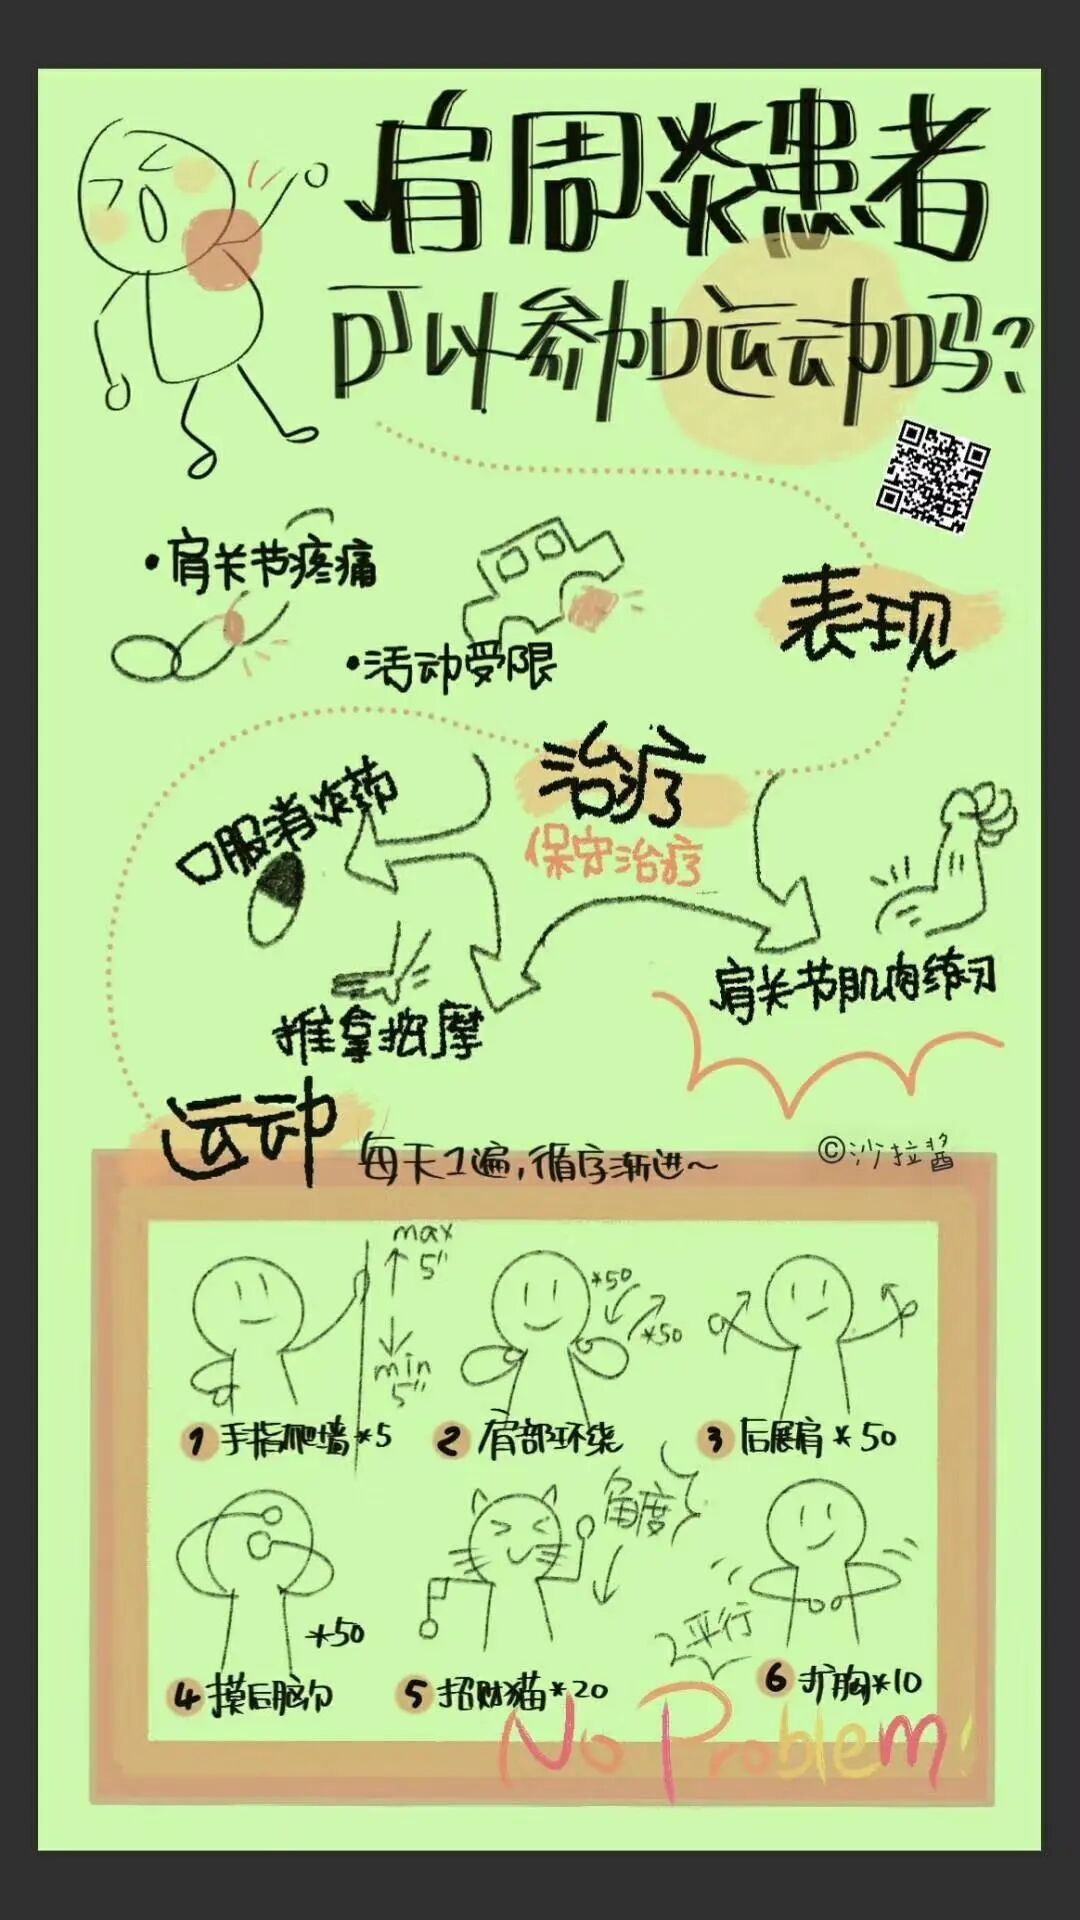 肩周炎患者
可以参加运动吗?
表现
•肩关节疼痛
•活动受限
治疗
保守治疗
口服消炎药
推拿按摩
肩关节肌肉练习
运动
每天1遍,循序渐进~
©沙拉酱
max
5"
min
5"
1 手指爬墙*5
*50
*50
2 肩部环绕
3 后展肩*50
*50
4 摸后脑勺
角度
5 招财猫*20
平行
6 扩胸*10
No Problem!